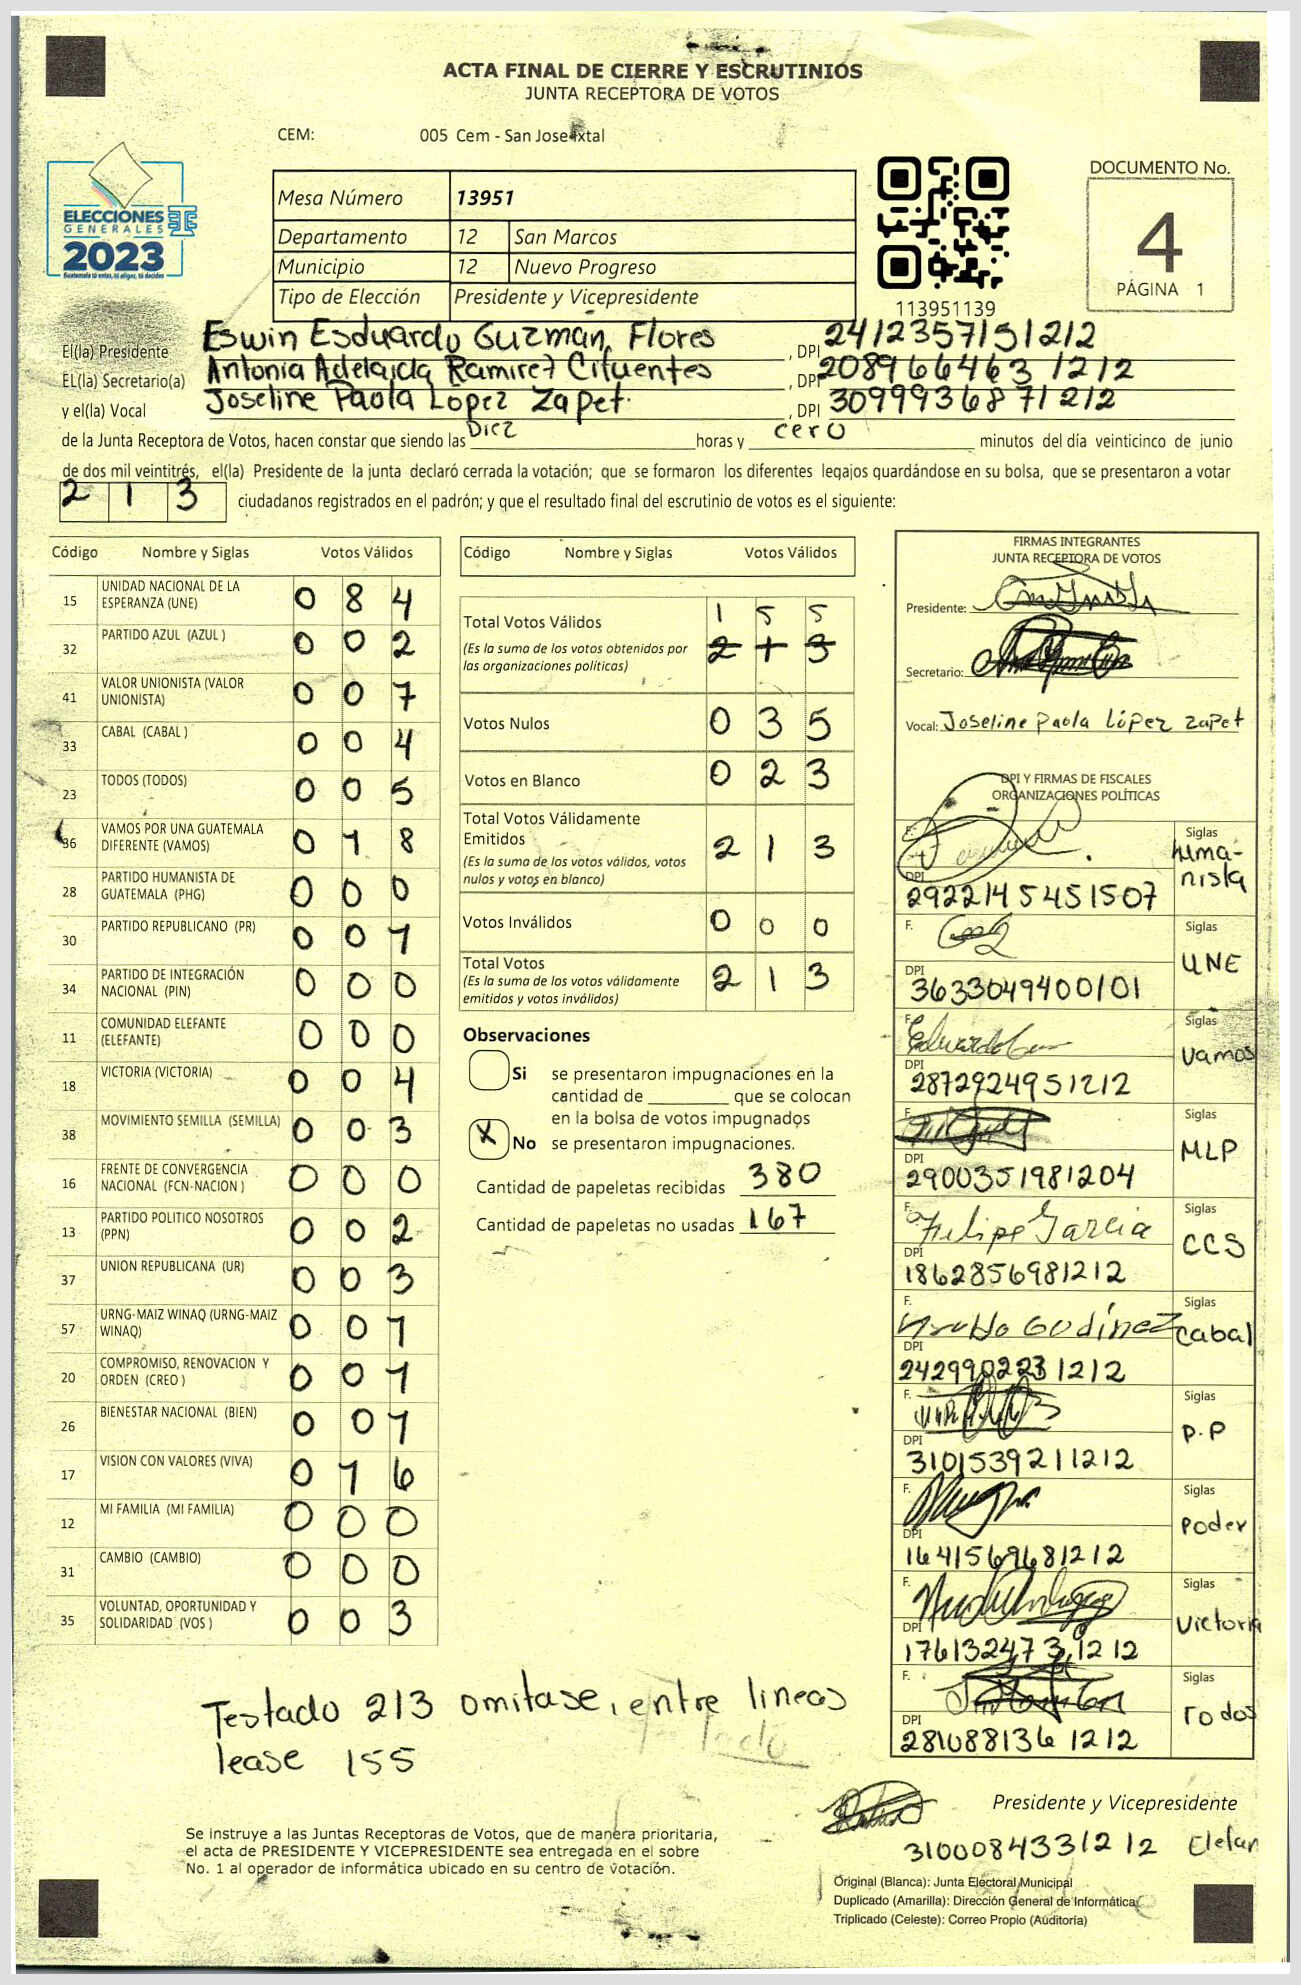 ACTA FINAL DE CIERRE Y ESCRUTINIOS
JUNTA RECEPTORA DE VOTOS
CEM: 005 Cem - San Jose Ixtal
ELECCIONES
GENERALES
2023
Guatemala tú eres, tú eliges, tú decides
Mesa Número 13951
Departamento 12 San Marcos
Municipio 12 Nuevo Progreso
Tipo de Elección Presidente y Vicepresidente
113951139
DOCUMENTO No.
4
PÁGINA 1
El(la) Presidente Eswin Esduardo Guzmán Flores, DPI 2412357151212
EL(la) Secretario(a) Antonia Adelaida Ramirez Cifuentes, DPI 2089664631212
y el(la) Vocal Joseline Paola Lopez Zapet, DPI 3099936871212
de la Junta Receptora de Votos, hacen constar que siendo las Diez horas y cero minutos del día veinticinco de junio
de dos mil veintitrés, el(la) Presidente de la junta declaró cerrada la votación; que se formaron los diferentes legajos guardándose en su bolsa, que se presentaron a votar
213 ciudadanos registrados en el padrón; y que el resultado final del escrutinio de votos es el siguiente:
Código Nombre y Siglas Votos Válidos
15 UNIDAD NACIONAL DE LA ESPERANZA (UNE) 0 8 4
32 PARTIDO AZUL (AZUL ) 0 0 2
41 VALOR UNIONISTA (VALOR UNIONISTA) 0 0 7
33 CABAL (CABAL ) 0 0 4
23 TODOS (TODOS) 0 0 5
36 VAMOS POR UNA GUATEMALA DIFERENTE (VAMOS) 0 1 8
28 PARTIDO HUMANISTA DE GUATEMALA (PHG) 0 0 0
30 PARTIDO REPUBLICANO (PR) 0 0 1
34 PARTIDO DE INTEGRACIÓN NACIONAL (PIN) 0 0 0
11 COMUNIDAD ELEFANTE (ELEFANTE) 0 0 0
18 VICTORIA (VICTORIA) 0 0 4
38 MOVIMIENTO SEMILLA (SEMILLA) 0 0 3
16 FRENTE DE CONVERGENCIA NACIONAL (FCN-NACION ) 0 0 0
13 PARTIDO POLITICO NOSOTROS (PPN) 0 0 2
37 UNION REPUBLICANA (UR) 0 0 3
57 URNG-MAIZ WINAQ (URNG-MAIZ WINAQ) 0 0 1
20 COMPROMISO, RENOVACION Y ORDEN (CREO ) 0 0 1
26 BIENESTAR NACIONAL (BIEN) 0 0 1
17 VISION CON VALORES (VIVA) 0 1 6
12 MI FAMILIA (MI FAMILIA) 0 0 0
31 CAMBIO (CAMBIO) 0 0 0
35 VOLUNTAD, OPORTUNIDAD Y SOLIDARIDAD (VOS ) 0 0 3
Código Nombre y Siglas Votos Válidos
1 5 5
Total Votos Válidos 2 1 3
(Es la suma de los votos obtenidos por
las organizaciones politicas)
Votos Nulos 0 3 5
Votos en Blanco 0 2 3
Total Votos Válidamente
Emitidos 2 1 3
(Es la suma de los votos válidos, votos
nulos y votos en blanco)
Votos Inválidos 0 0 0
Total Votos 2 1 3
(Es la suma de los votos válidamente
emitidos y votos inválidos)
Observaciones
Si se presentaron impugnaciones en la
cantidad de ________ que se colocan
en la bolsa de votos impugnados
X No se presentaron impugnaciones.
Cantidad de papeletas recibidas 380
Cantidad de papeletas no usadas 167
FIRMAS INTEGRANTES
JUNTA RECEPTORA DE VOTOS
Presidente:
Secretario:
Vocal: Joseline Paola López Zapet
DPI Y FIRMAS DE FISCALES
ORGANIZACIONES POLÍTICAS
F. Siglas Humanista
DPI 2922145451507
F. Siglas UNE
DPI 3633049400101
F. Siglas Vamos
DPI 2872924951212
F. Siglas MLP
DPI 2900351981204
F. Felipe Garcia Siglas CCS
DPI 1862856981212
F. Godínez Siglas Cabal
DPI 2429902231212
F. Siglas P.P
DPI 3101539211212
F. Siglas Poder
DPI 1641569681212
F. Siglas Victoria
DPI 1761324731212
F. Siglas Todos
DPI 2810881361212
Testado 213 omitase, entre lineas
lease 155
Presidente y Vicepresidente
3100084331212 Elefan
Se instruye a las Juntas Receptoras de Votos, que de manera prioritaria,
el acta de PRESIDENTE Y VICEPRESIDENTE sea entregada en el sobre
No. 1 al operador de informática ubicado en su centro de votación.
Original (Blanca): Junta Electoral Municipal
Duplicado (Amarilla): Dirección General de Informática
Triplicado (Celeste): Correo Propio (Auditoría)